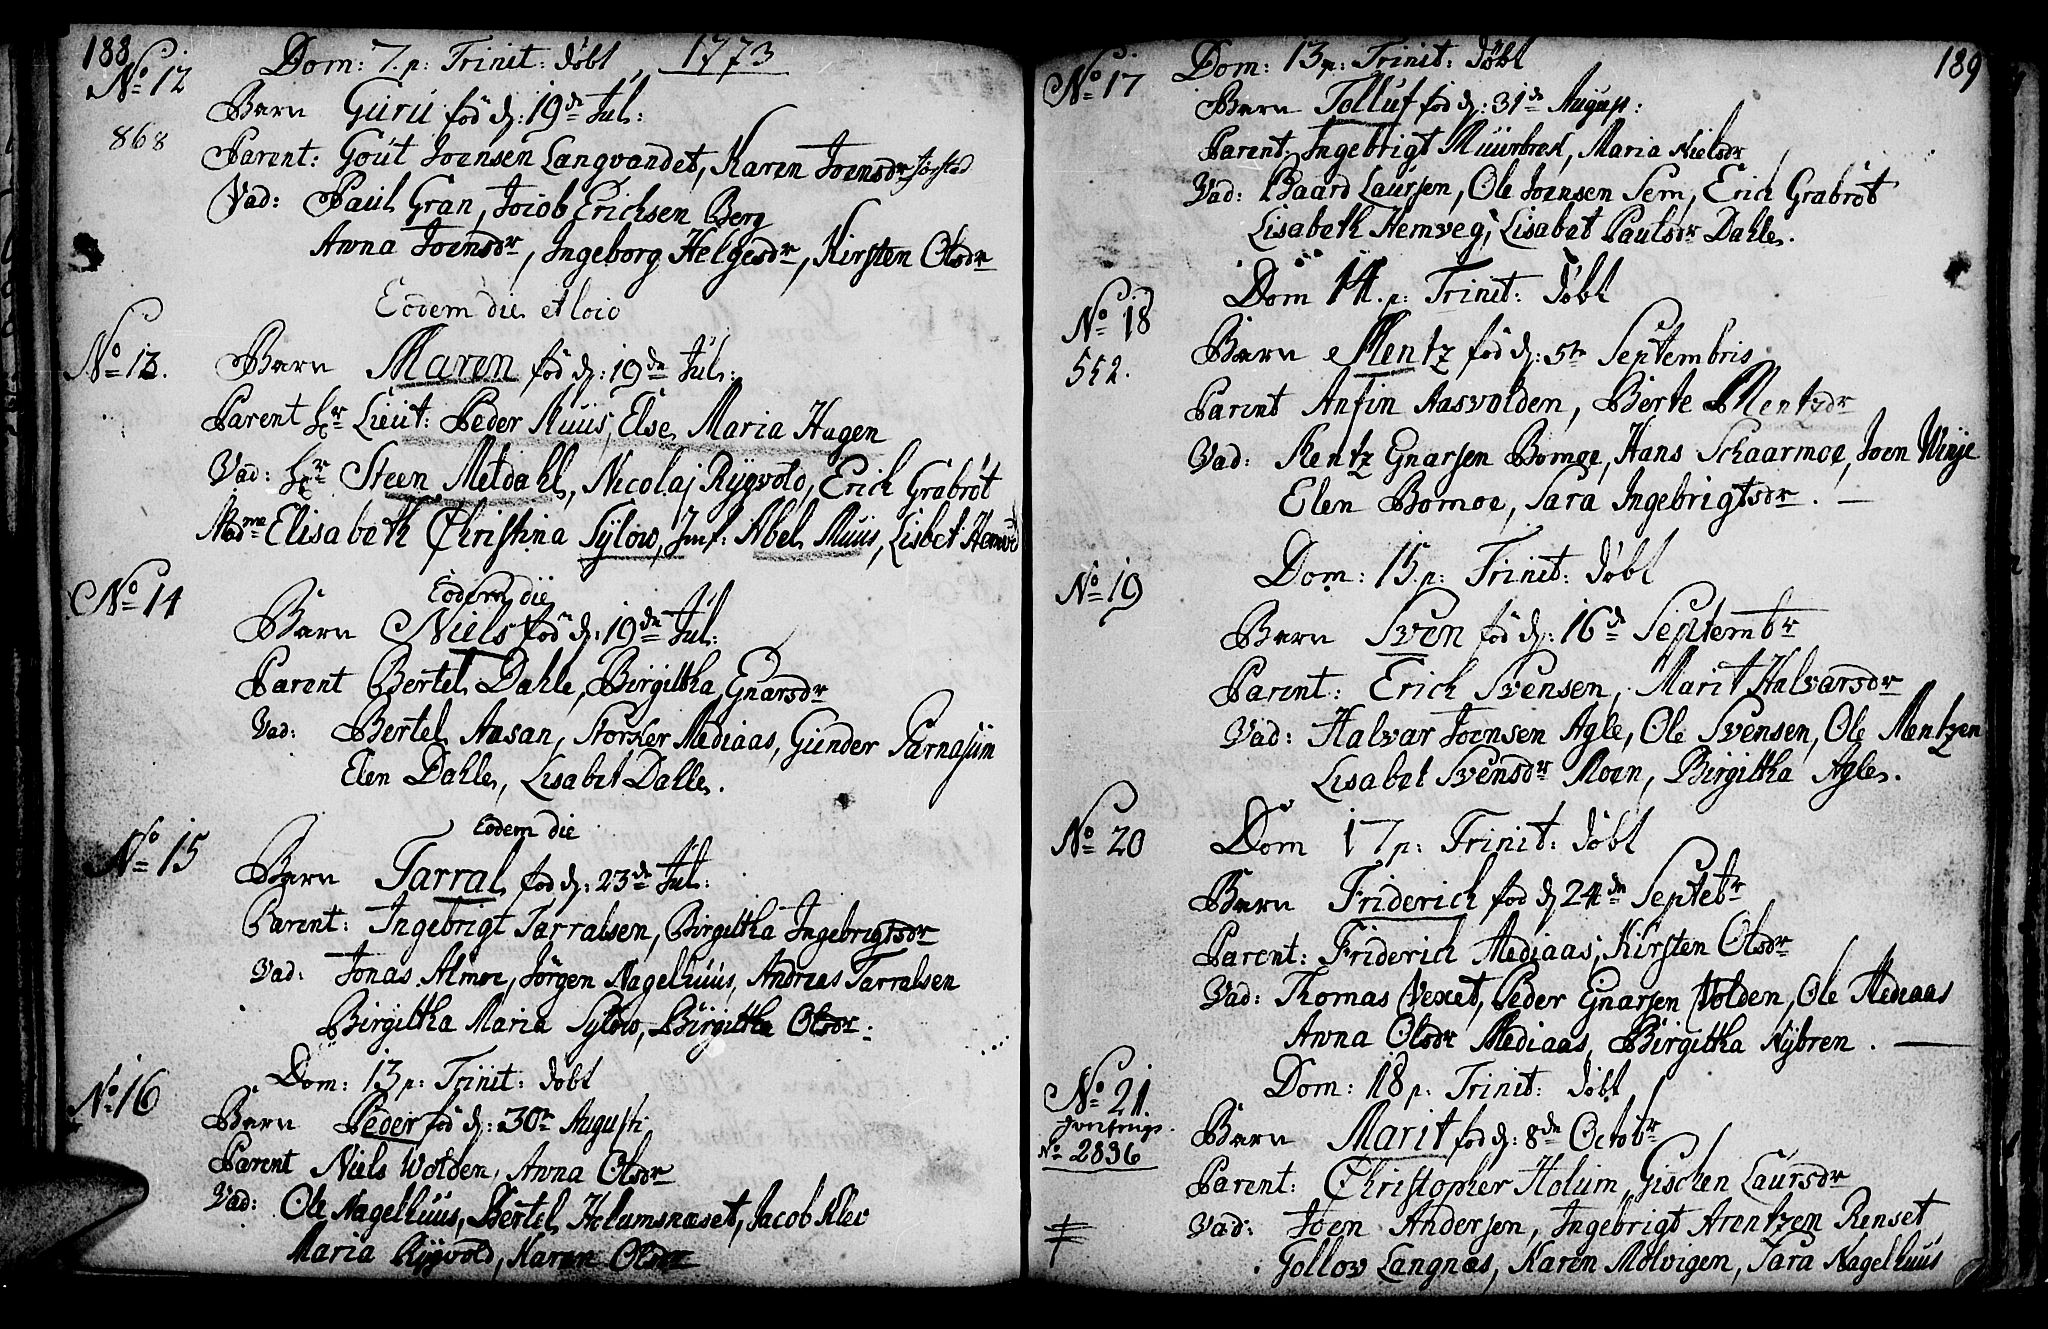 188
No 12 Dom: 7. p: Trinit: döbt 1773
Barn Guru föd d: 19de Jul:
868
Parent: Gout Joensen Langvandet, Karen Joensdr
Vad: Paul Gran, Jocob Erichsen Berg
Anna Joensdr, Ingeborg Helgesdr, Kirsten Olsdr
Eodem die et loco
No 13. Barn Maren föd d: 19de Jul:
Parent Hr Lieut: Peder Muus, Else Maria Hagen
Vad: Hr Steen Metdahl, Nicolaj Rygvold, Erich Grabröt
Mdme Elisabeth Christina Sylow, Jmf: Abel Muus, Lisbet
Eodem die
No 14 Barn Niels föd d: 19de Jul:
Parent Bertel Dahle, Birgittha Gnarsdr
Vad: Bertel Aasan, Storker Mediaas, Gunder Parnasum
Elen Dahle, Lisabet Dahle.
Eodem die
No 15 Barn Tarral föd d: 23de Jul:
Parent: Ingebrigt Tarralsen, Birgittha Ingebrigtsdr
Vad: Jonas Almoe, Jörgen Nagelhuus, Andreas Tarralsen
Birgittha Maria Sylow, Birgittha Olsdr.
Dom: 13 p: Trinit: döbt
No 16 Barn Peder föd d: 30te Augusti
Parent Niels Wolden, Anna Olsdr
Vad: Ole Nagelhuus, Bertel Holumsnæset, Jacob Klev
Maria Rygvold, Karen Olsdr
189
No 17 Dom: 13 p: Trinit: döbt
Barn Tolluf föd d: 31de August:
Parent: Ingebrigt Muurbrek, Maria Nielsdr
Vad: Baard Laursen, Ole Joensen Sem, Erich Grabröt
Lisabeth Hemveg, Lisabet Paulsdr Dahle.
Dom 14. p: Trinit: döbt
No 18 Barn Mentz föd d: 5te Septembris
552.
Parent Anfin Aasvolden, Berte Mentzdr
Vad: Mentz Gnarsen Bomoe, Hans Schaarmoe, Joen Winje
Elen Bomoe, Sara Ingebrigtsdr.
Dom: 15 p: Trinit: döbt
No 19
Barn Sven föd d: 16de Septembr
Parent: Erich Svensen, Marit Halvarsdr
Vad: Halvar Joensen Agle, Ole Svensen, Ole Mentzen
Lisabet Svensdr Moen, Birgittha Agle.
No 20 Dom 17 p: Trinit: döbt
Barn Friderich föd d: 24de Septebr
Parent: Friderich Mediaas, Kirsten Olsdr
Vad: Thomas Vexet, Peder Gnarsen Volden, Ole Mediaas
Anna Olsdr Mediaas, Birgittha Nybren.
Dom: 18 p: Trinit: döbt
No 21.
No 2836
Barn Marit föd d: 8de Octobr
Parent: Christopher Holum, Gischen Laursdr
Vad: Joen Andersen, Ingebrigt Arentzen Renset
Gollow Langnæs, Karen Molvigen, Sara Nagelhuus